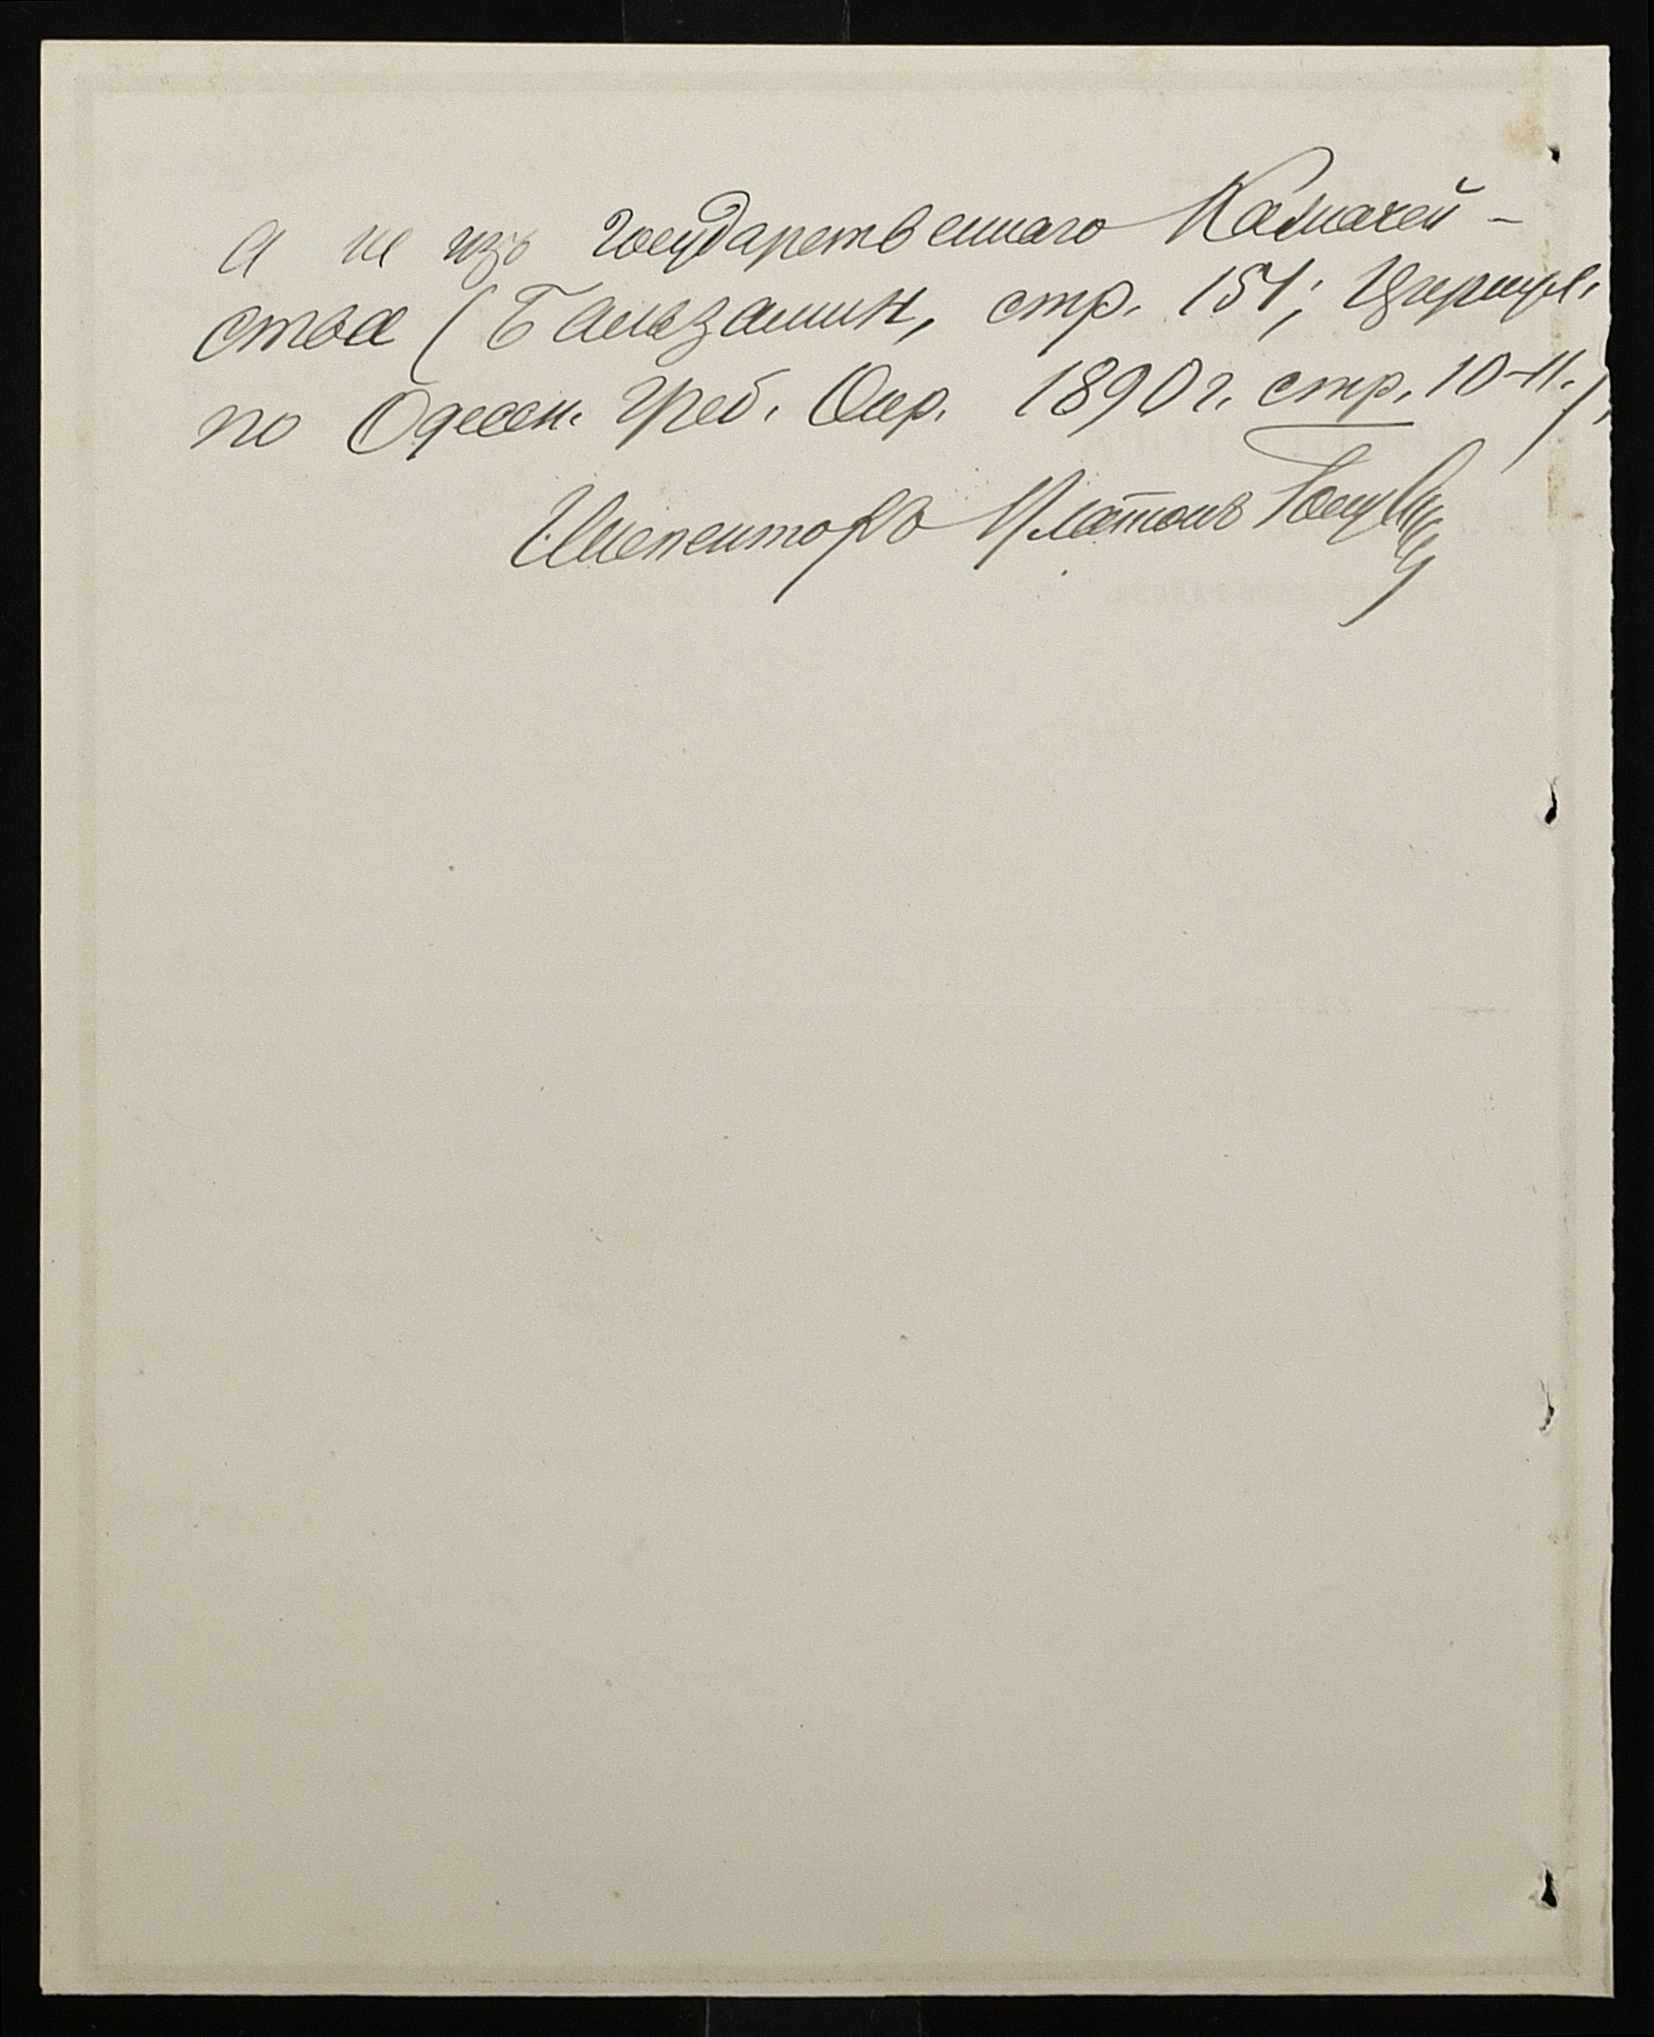 а не изъ Государственнаго Казначей-
ства (Бальзамин, стр. 151; Циркул.
по Одесск. Учеб. Окр. 1890 г. стр. 10-11.).
Инспекторъ Платонъ